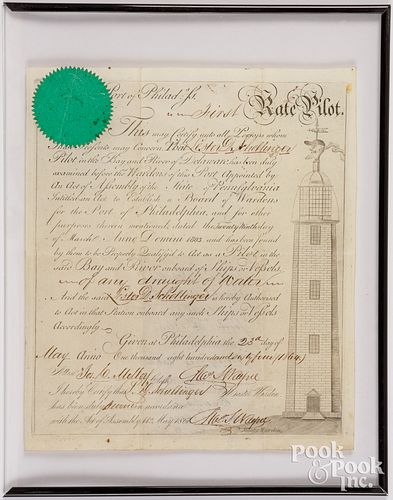 Port of Philad.
First Rate Pilot.
This may Certify unto all Persons whom
These Presents may Concern That Lester D. Schellinger
Pilot in the Bay and River of Delaware has been duly
examined before the Wardens of this Port Appointed by
An Act of Assembly of the State of Pennsylvania
Intitled an Act to Establish a Board of Wardens
for the Port of Philadelphia, and for other
purposes therein mentioned, dated the Twenty Ninth day
of March Anno Domini 1803 and has been found
by them to be Properly Qualified to Act as a Pilot in the
said Bay and River onboard of Ships or Vessels
of any draught of Water
And the said Schellinger is hereby Authorised
to Act in that Station onboard any such Ships or Vessels
Accordingly.
Given at Philadelphia the 23rd day of
May Anno One thousand eight hundred and sixty four (1864)
Clerk
I hereby Certify that Schellinger
has been duly
with the Act of Assembly May 186
Master Warden
POOK
& POOK
Inc.